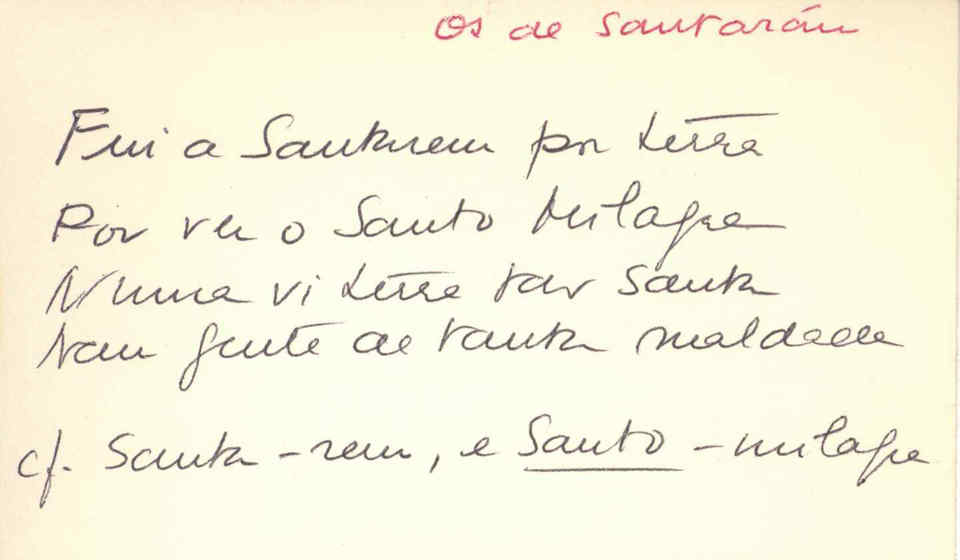 Os de Santarém
Fui a Santarem por terra
Por ver o Santo Milagre
Nunca vi terra tão Santa
Nem gente de tanta maldade
cf. Santa-rem, e Santo-milagre